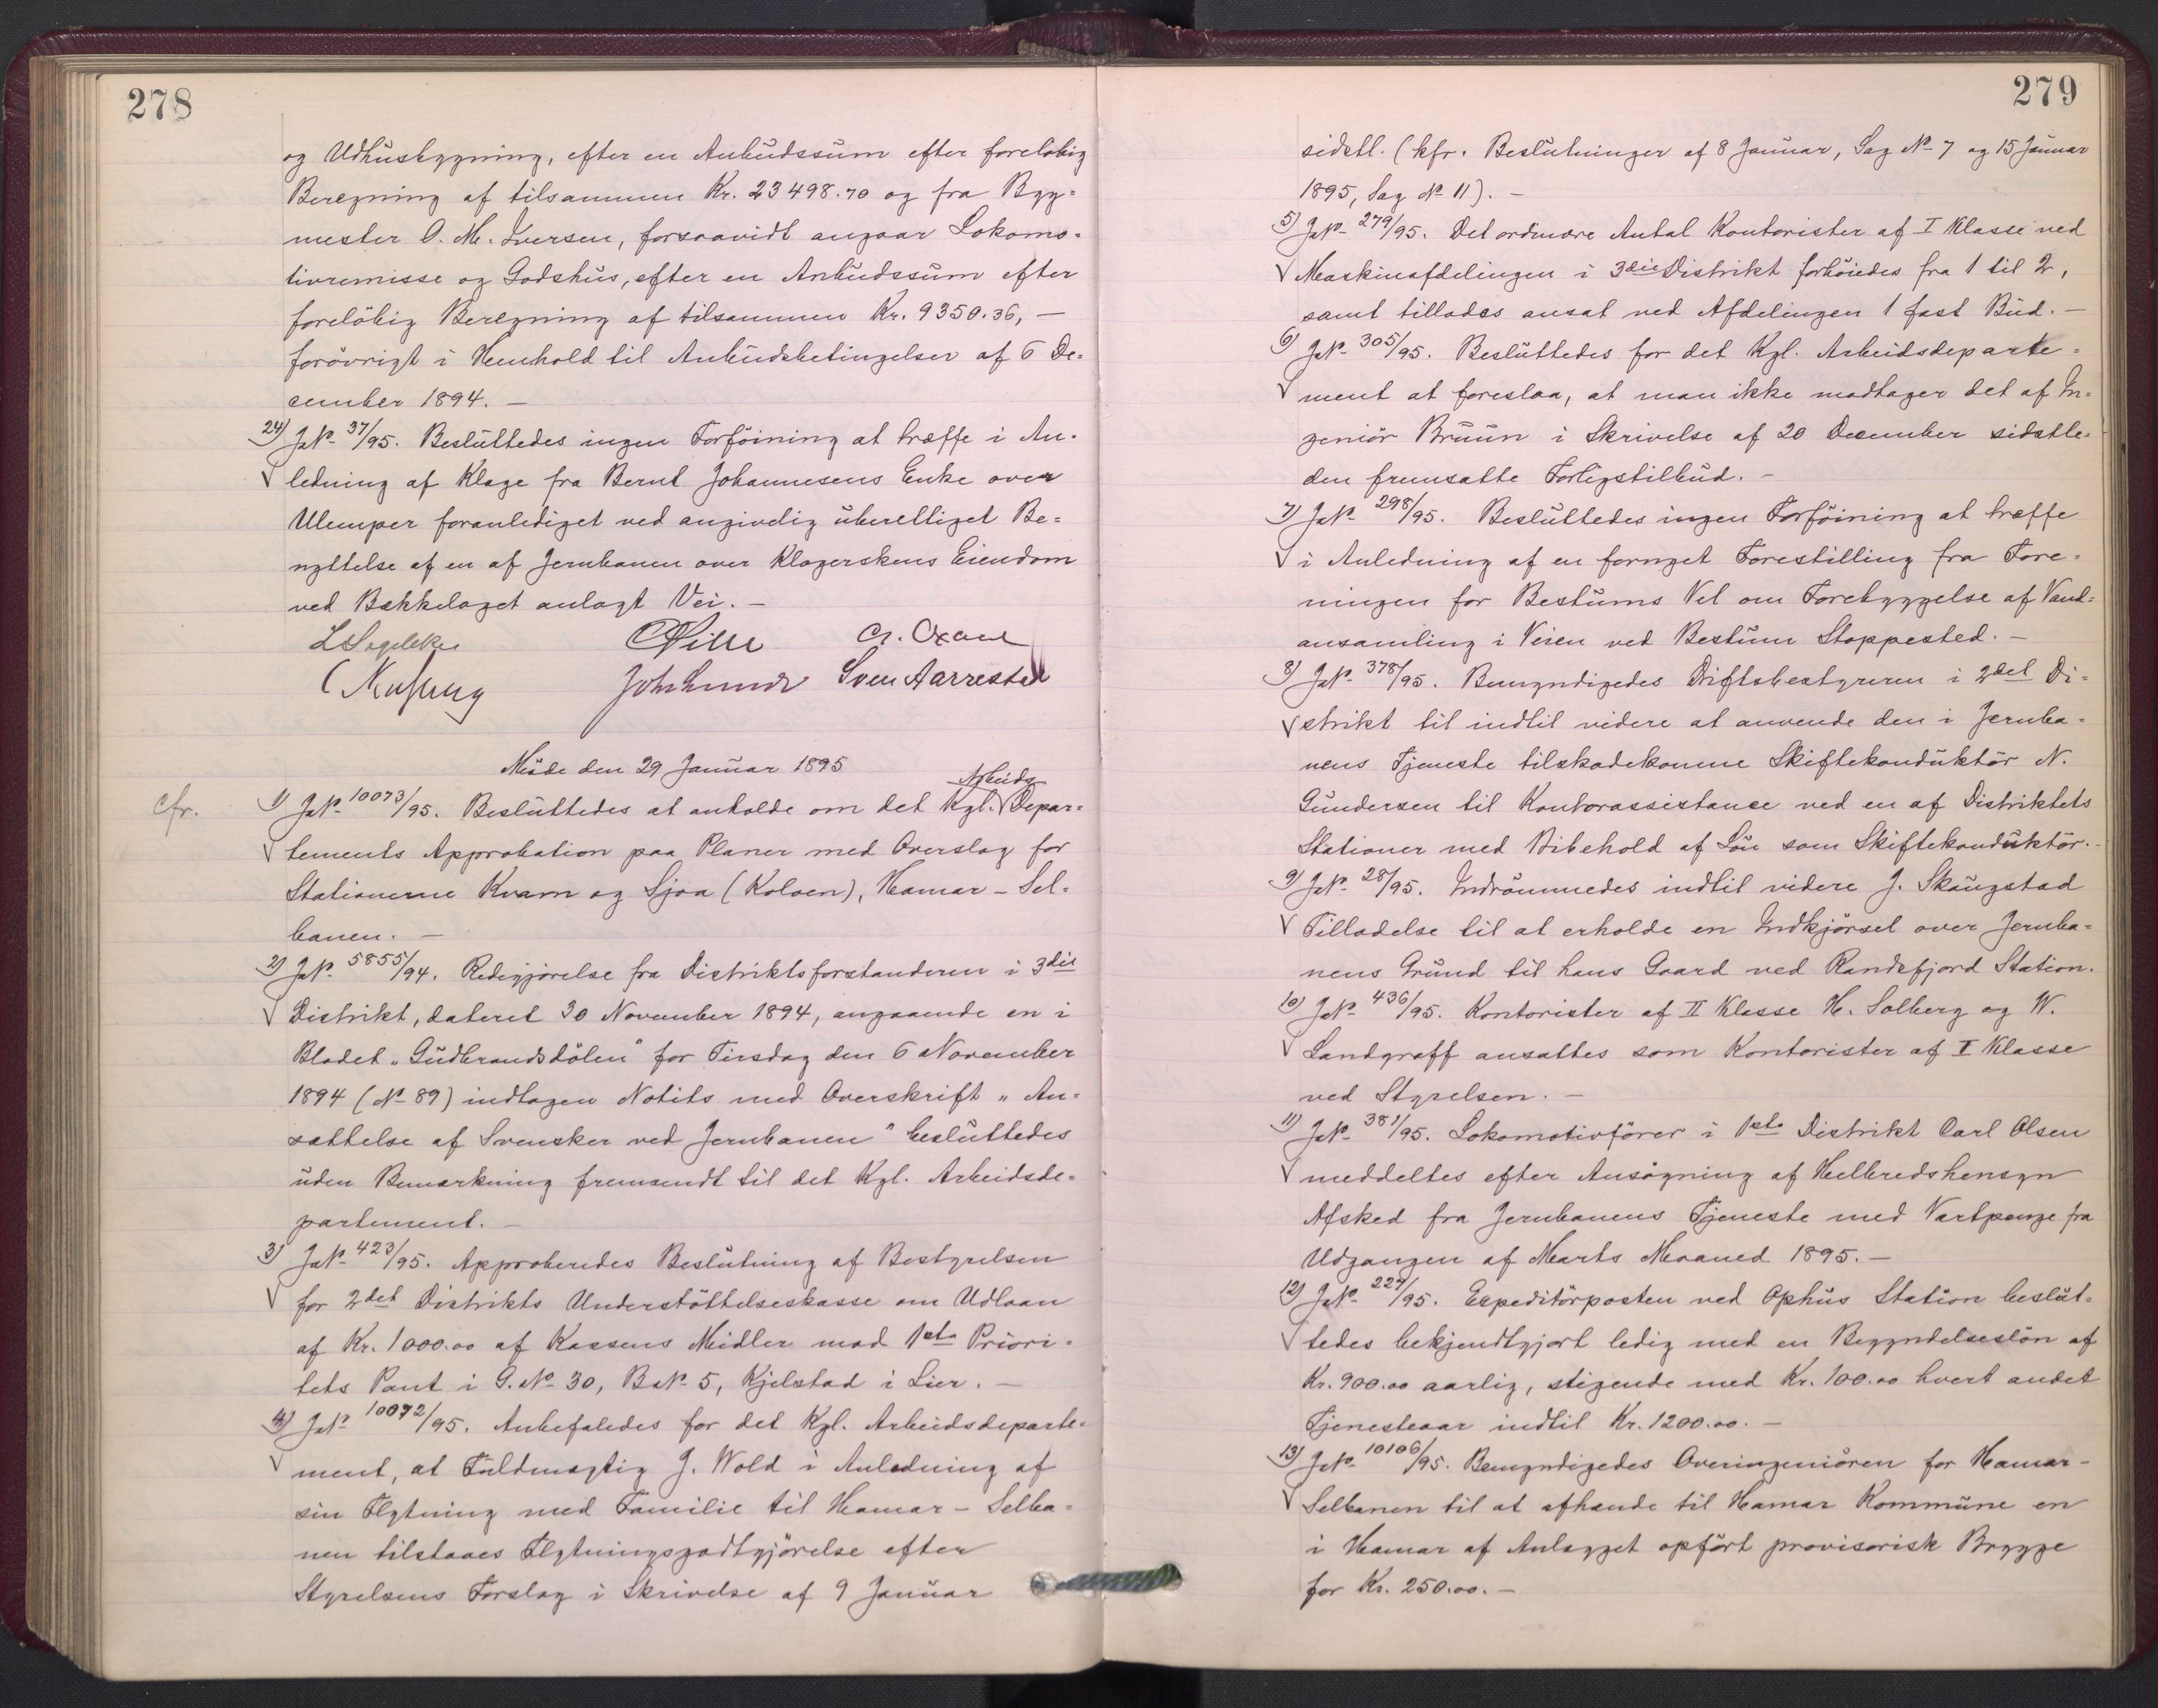 278
og Udhusbygning, efter en Anbudssum efter foreløbig
Beregning af tilsammen Kr. 23498.70 og fra Byg=
mester O. M. Iversen, forsaavidt angaar Lokomo=
tivremisse og Godshus, efter en Anbudssum efter
foreløbig Beregning af tilsammen Kr. 9350.36, —
forøvrigt i Henhold til Anbudsbetingelser af 6 De=
cember 1894. —
24) J№ 37/95. Besluttedes ingen Forføining at træffe i An=
ledning af Klage fra Bernt Johannesens Enke over
Ulemper foranlediget ved angivelig uberettiget Be=
nyttelse af en af Jernbanen over Klagerskens Eiendom
ved Bækkelaget anlagt Vei. —
Sven Aarrestad
Møde den 29 Januar 1895
cfr. 1) J№ 10073/95. Besluttedes at anholde om det Kgl. Arbeids Depar=
tements Approbation paa Planer med Overslag for
Stationerne Kvam og Sjoa (Koloen), Hamar - Sel=
banen. —
2) J№ 5855/94. Redegjørelse fra Distriktsforstanderen i 3die
Distrikt, dateret 30 November 1894, angaaende en i
Bladet „Gudbrandsdølen" for Tirsdag den 6 November
1894 (№ 89) indtagen Notits med Overskrift „An=
sættelse af Svensker ved Jernbanen" besluttedes
uden Bemærkning fremsendt til det Kgl. Arbeidsde=
partement. —
3) J№ 423/95. Approberedes Beslutning af Bestyrelsen
for 2det Distrikts Understøttelseskasse om Udlaan
af Kr. 1000.00 af Kassens Midler mod 1ste Priori=
tets Pant i G.№ 30, B№ 5, Kjelstad i Lier. —
4) J№ 10072/95. Anbefaledes for det Kgl. Arbeidsdeparte=
ment, at Fuldmægtig J. Wold i Anledning af
sin Flytning med Familie til Hamar - Selba=
nen tilstaaes Flytningsgodtgjørelse efter
Styrelsens Forslag i Skrivelse af 9 Januar
279
sidstl. (kfr. Beslutninger af 8 Januar, Sag № 7 og 15 Januar
1895, Sag № 11). —
5) J№ 279/95. Det ordinære Antal Kontorister af I Klasse ved
Maskinafdelingen i 3die Distrikt forhøiedes fra 1 til 2,
samt tillodes ansat ved Afdelingen 1 fast Bud. —
6) J№ 305/95. Besluttedes for det Kgl. Arbeidsdeparte=
ment at foreslaa, at man ikke modtager det af In=
geniør Bruun i Skrivelse af 20 December sidstle=
den fremsatte Forligstilbud. —
7) J№ 298/95. Besluttedes ingen Forføining at træffe
i Anledning af en fornyet Forestilling fra Fore=
ningen for Bestums Vel om Forebyggelse af Vand=
ansamling i Veien ved Bestum Stoppested. —
8) J№ 378/95. Bemyndigedes Driftsbestyreren i 2det Di=
strikt til indtil videre at anvende den i Jernba=
nens Tjeneste tilskadekomne Skiftekonduktør N.
Gundersen til Kontorassistance ved en af Distriktets
Stationer med Bibehold af Løn som Skiftekonduktør. —
9) J№ 28/95. Indrømmedes indtil videre J. Skaugstad
Tilladelse til at erholde en Indkjørsel over Jernba=
nens Grund til hans Gaard ved Randsfjord Station.
10) J№ 436/95. Kontorister af II Klasse H. Solberg og W.
Landgraff ansattes som Kontorister af I Klasse
ved Styrelsen. —
11) J№ 381/95. Lokomotivfører i 1ste Distrikt Carl Olsen
meddeltes efter Ansøgning af Helbredshensyn
Afsked fra Jernbanens Tjeneste med Vartpenge fra
Udgangen af Marts Maaned 1895. —
12) J№ 227/95. Expeditørposten ved Ophus Station beslut=
tedes bekjendtgjort ledig med en Begyndelsesløn af
Kr. 900.00 aarlig, stigende med Kr. 100.00 hvert andet
Tjenesteaar indtil Kr. 1200.00. —
13) J№ 10106/95. Bemyndigedes Overingeniøren for Hamar -
Selbanen til at afhænde til Hamar Kommune en
i Hamar af Anlægget opført provisorisk Brygge
for Kr. 250.00. —